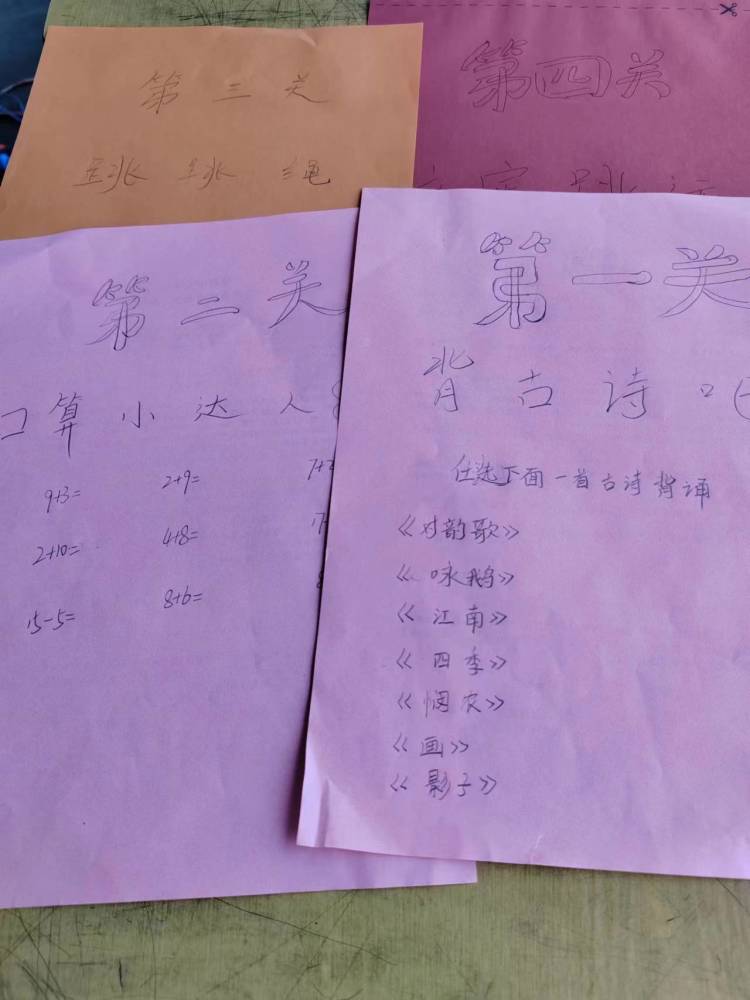 第三关
跳跳绳
第四关
第二关
口算小达人
9+3= 2+9=
2+10= 4+8=
15-5= 8+6=
第一关
背古诗
任选下面一首古诗背诵
《对韵歌》
《咏鹅》
《江南》
《四季》
《悯农》
《画》
《影子》